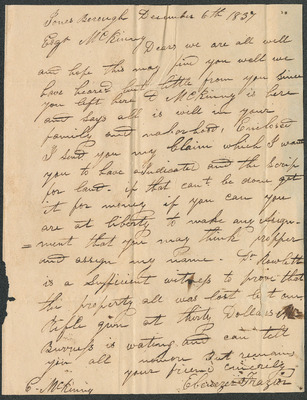 Jones Borough December 6th 1837
Esqr McKinny
Dears we are all well
and hope this may find you well we
have heared but little from you since
you left here McKinny is here
and says all is well in your
family and nabor hood, Enclosed
I send you my Claim which I want
you to have adudicated and the Scrip
for land. if that can't be done get
it for money if you can you
are at liberty to make any asign-
ment that you may think propper
and assign my name. Dr Rowlett
is a Sufficient witness to prove that
the property all was lost but one
Rifle gun at thirty Dollars Mr
Burress is wateing and I can tell
you all nomore but remains
your friend sincerely
E- McKinny Ebenezer Frazier